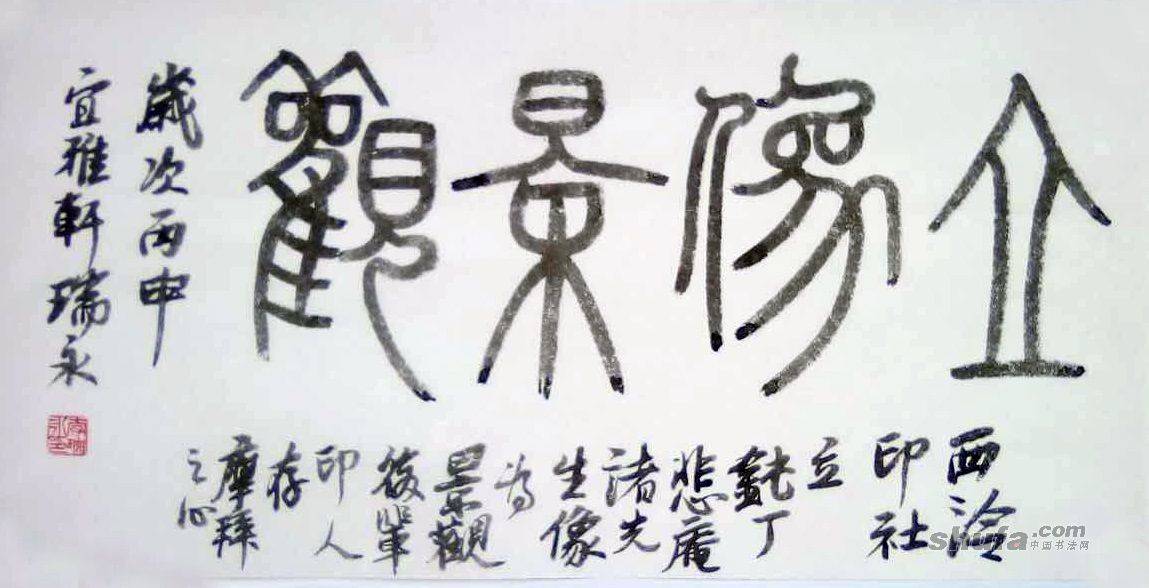 立像景觀
西泠
印社
立
鈍丁
悲庵
諸先
生像
為
景觀
後輩
印人
存
摩拜
之心
歲次丙申
宜雅軒瑞永
shufa.com
中国书法网